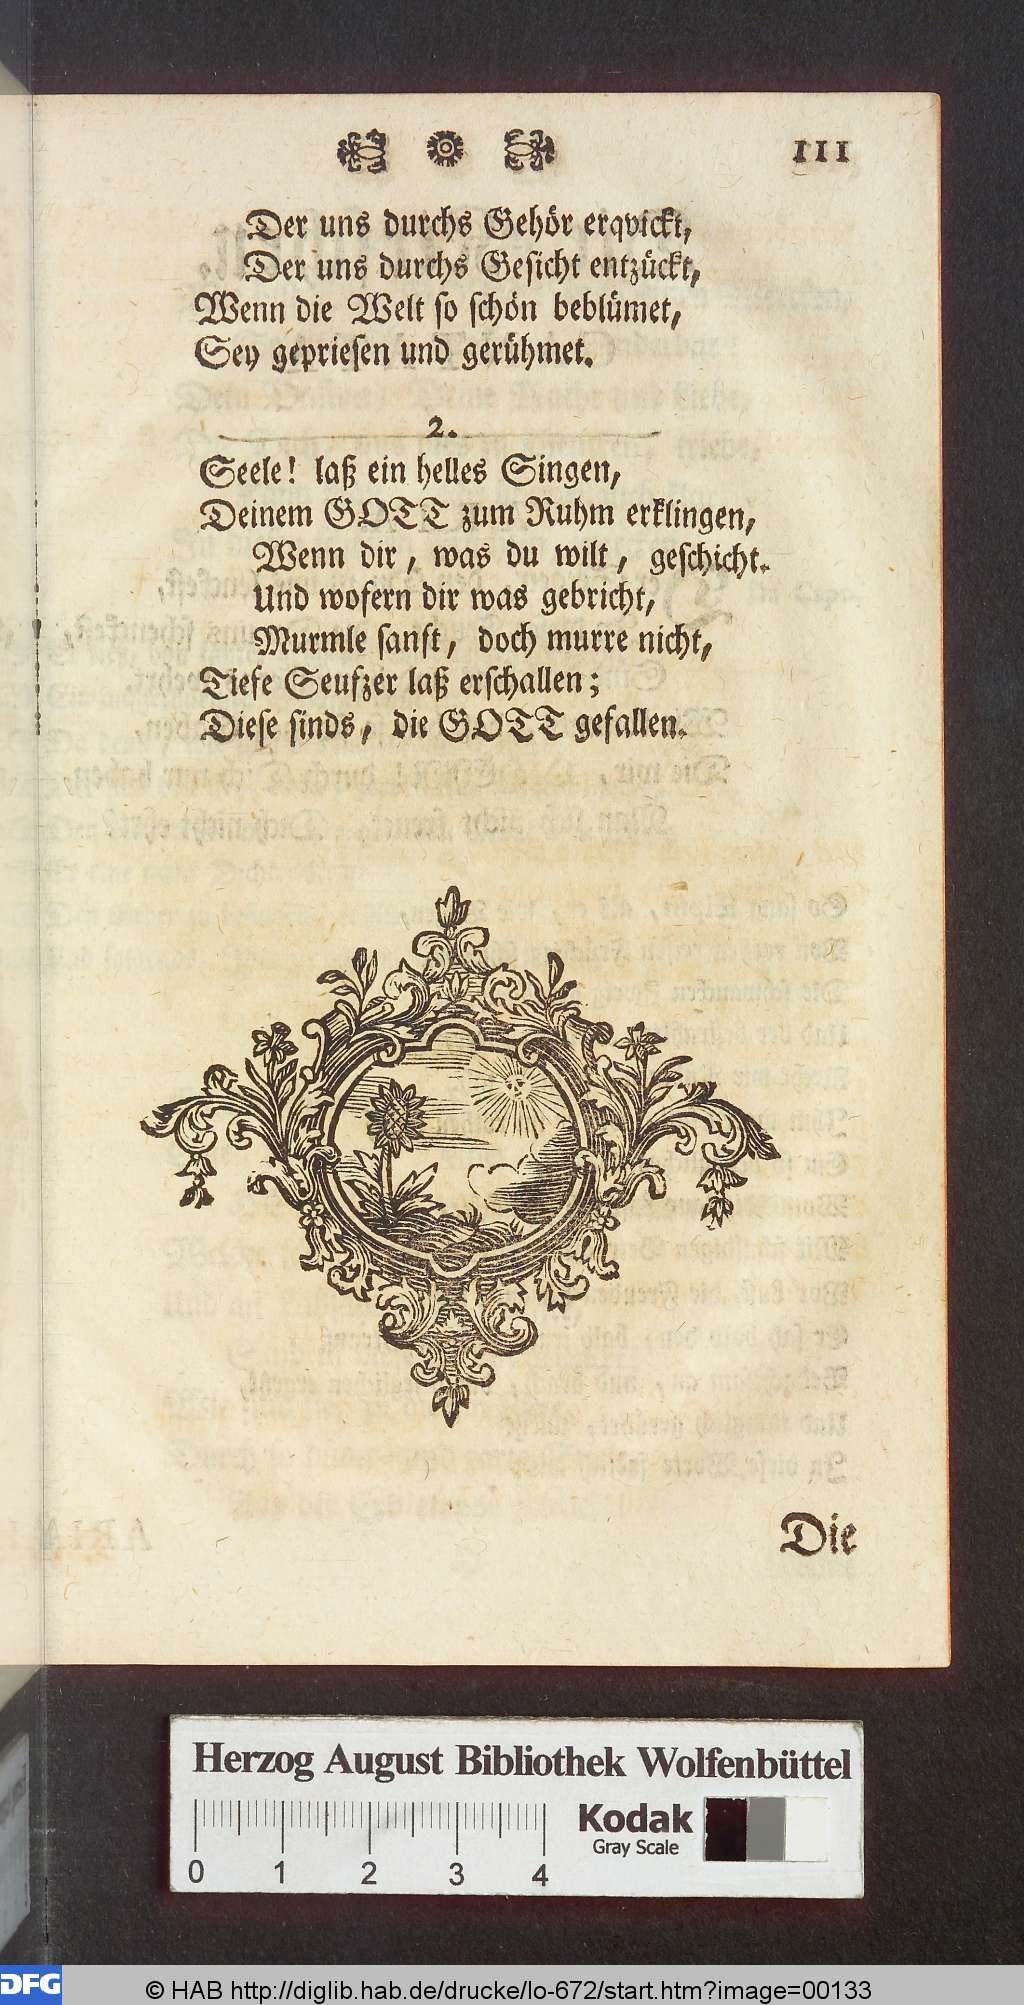 111
Der uns durchs Gehör erqvickt,
Der uns durchs Gesicht entzückt,
Wenn die Welt so schön beblümet,
Sey gepriesen und gerühmet.
2.
Seele! laß ein helles Singen,
Deinem GOTT zum Ruhm erklingen,
Wenn dir, was du wilt, geschicht.
Und wofern dir was gebricht,
Murmle sanft, doch murre nicht,
Tiefe Seufzer laß erschallen;
Diese sinds, die GOTT gefallen.
Die
Herzog August Bibliothek Wolfenbüttel
Kodak
Gray Scale
0 1 2 3 4
DFG © HAB http://diglib.hab.de/drucke/lo-672/start.htm?image=00133